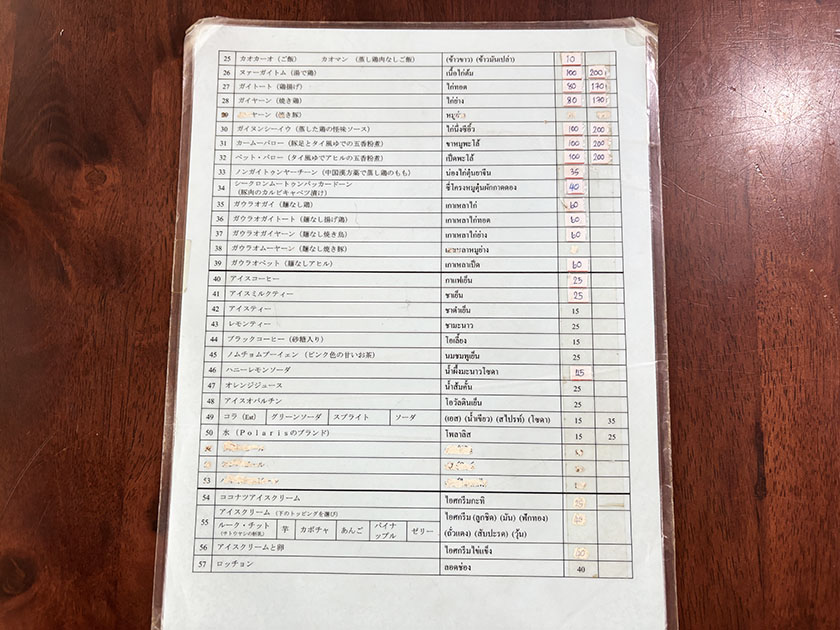 25 カオカーオ（ご飯） カオマン（蒸し鶏肉なしご飯） (ข้าวขาว) (ข้าวมันเปล่า) 10
26 ヌァーガイトム（湯で鶏） เนื้อไก่ต้ม 100 200
27 ガイトート（鶏揚げ） ไก่ทอด 80 170
28 ガイヤーン（焼き鶏） ไก่ย่าง 80 170
ヤーン（焼き豚） หมู
30 ガイヌンシーイウ（蒸した鶏の怪味ソース） ไก่นึ่งซีอิ๊ว 100 200
31 カームーパロー（豚足とタイ風ゆでの五香粉煮） ขาหมูพะโล้ 100 200
32 ペット・パロー（タイ風ゆでアヒルの五香粉煮） เป็ดพะโล้ 100 200
33 ノンガイトゥンヤーチーン（中国漢方薬で蒸し鶏のもも） น่องไก่ตุ๋นยาจีน 35
34 シークロンムートゥランパッカードーン（豚肉のカルビキャベツ漬け） ซี่โครงหมูตุ๋นผักกาดดอง 40
35 ガウラオガイ（麺なし鶏） เกาเหลาไก่ 60
36 ガウラオガイトート（麺なし揚げ鶏） เกาเหลาไก่ทอด 60
37 ガウラオガイヤーン（麺なし焼き鳥） เกาเหลาไก่ย่าง 60
38 ガウラオムーヤーン（麺なし焼き豚） หมูย่าง
39 ガウラオペット（麺なしアヒル） เกาเหลาเป็ด 60
40 アイスコーヒー กาแฟเย็น 25
41 アイスミルクティー ชาเย็น 25
42 アイスティー ชาดำเย็น 15
43 レモンティー ชามะนาว 25
44 ブラックコーヒー（砂糖入り） โอเลี้ยง 15
45 ノムチョムプーイェン（ピンク色の甘いお茶） นมชมพูเย็น 25
46 ハニーレモンソーダ น้ำผึ้งมะนาวโซดา 45
47 オレンジジュース น้ำส้มคั้น 25
48 アイスオバルチン โอวัลตินเย็น 25
49 コラ（Est） グリーンソーダ スプライト ソーダ (เอส) (น้ำเขียว) (สไปรท์) (โซดา) 15 35
50 水（Polarisのブランド） โพลาลิส 15 25
53
54 ココナツアイスクリーム ไอศกรีมกะทิ
55 アイスクリーム（下のトッピングを選び） ไอศกรีม (ลูกชิด) (มัน) (ฟักทอง)
ルーク・チット（サトウヤシの胚乳） 芋 カボチャ あんご パイナップル ゼリー (ถั่วแดง) (สับปะรด) (วุ้น)
56 アイスクリームと卵 ไอศกรีมไข่แข็ง
57 ロッチョン ลอดช่อง 40